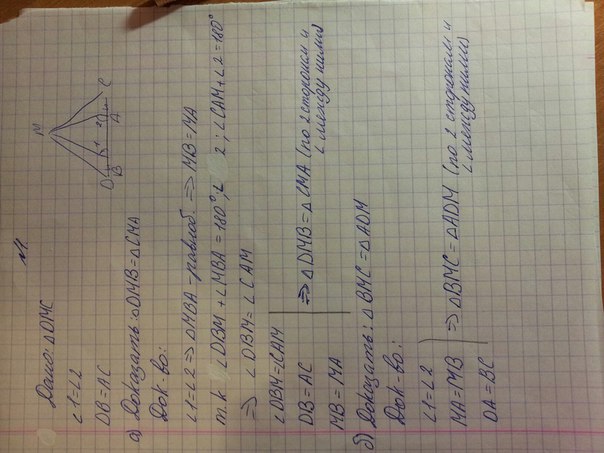 M.
Дано: △DMC
∠1=∠2
DB=AC
M
D
B
1
2
A
C
а) Доказать: △DMB=△CMA
Док-во:
∠1=∠2 ⇒ △MBA - равноб. ⇒ MB=MA
т.к ∠DBM+∠MBA=180°; ∠ 2; ∠CAM+∠2=180°
⇒ ∠DBM=∠CAM
∠DBM=∠CAM
DB=AC ⇒ △DMB=△CMA (по 2 сторонам и
MB=MA ∠ между ними)
б) Доказать: △BMC=△ADM
Док-во:
∠1=∠2
MA=MB ⇒ △BMC=△ADM (по 2 сторонами и
DA=BC ∠ между ними)